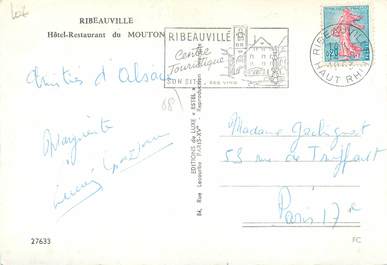 RIBEAUVILLE
Hôtel-Restaurant du MOUTON
RIBEAUVILLE
Centre
Touristique
SON SITE - SES VINS
RIBEAUVILLE
HAUT RHIN
0,20
Amitiés d'Alsace
Marguerite
EDITIONS de LUXE « ESTEL » Reproduction
84, Rue Lecourbe PARIS-XVe
Madame
53 rue de Truffaut
Paris 17e
68
27633
FC